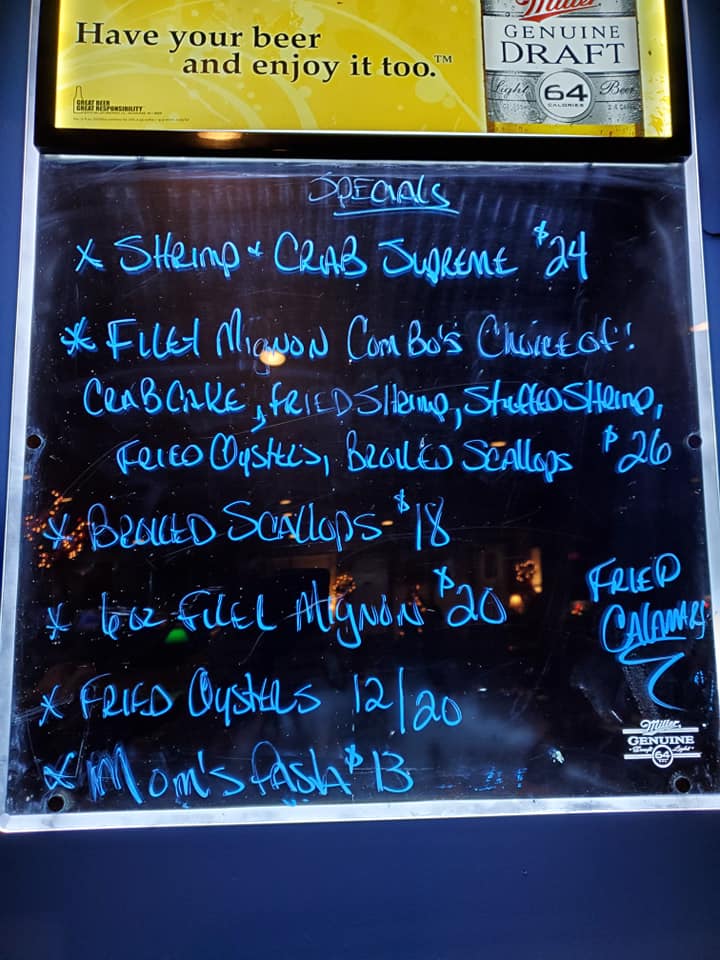 Have your beer
and enjoy it too.™
GREAT BEER
GREAT RESPONSIBILITY
Miller
GENUINE
DRAFT
Light 64 Beer
CALORIES
SPECIALS
* SHRIMP & CRAB SUPREME $24
* FILET MIGNON COMBO'S CHOICE OF:
CRAB CAKE, FRIED SHRIMP, STUFFED SHRIMP,
FRIED OYSTERS, BROILED SCALLOPS $26
* BROILED SCALLOPS $18
* 6oz FILET MIGNON $20
FRIED
CALAMARI
* FRIED OYSTERS 12/20
* MOM'S PASTA $13
Miller
GENUINE
Draft 64 Light